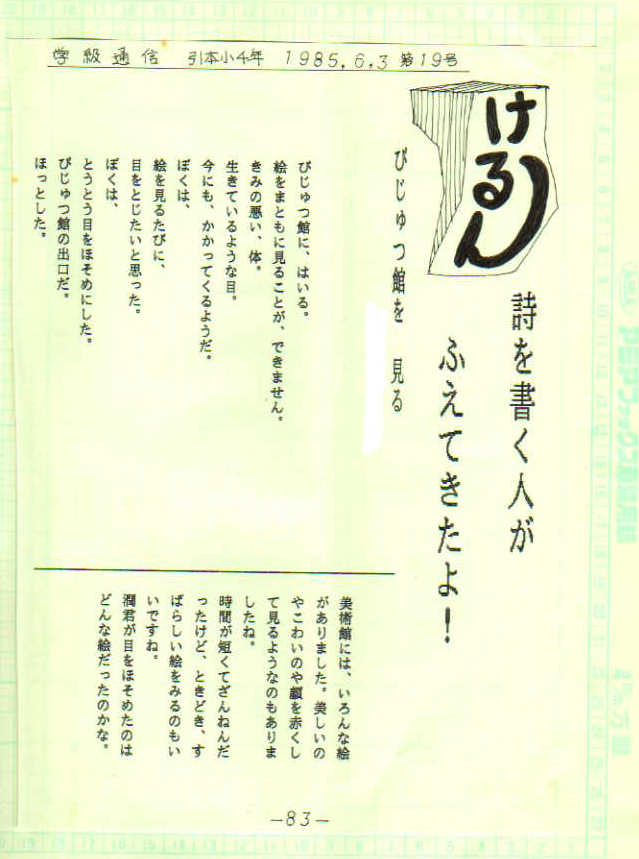 学級通信 引本小4年 1985.6.3 第19号
けるん
詩を書く人が
ふえてきたよ!
びじゅつ館を 見る
びじゅつ館に、はいる。
絵をまともに見ることが、できません。
きみの悪い、体。
生きているような目。
今にも、かかってくるようだ。
ぼくは、
絵を見るたびに、
目をとじたいと思った。
ぼくは、
とうとう目をほそめにした。
びじゅつ館の出口だ。
ほっとした。
美術館には、いろんな絵
がありました。美しいの
やこわいのや顔を赤くし
て見るようなのもありま
したね。
時間が短くてざんねんだ
ったけど、ときどき、す
ばらしい絵をみるのもい
いですね。
潤君が目をほそめたのは
どんな絵だったのかな。
-83-